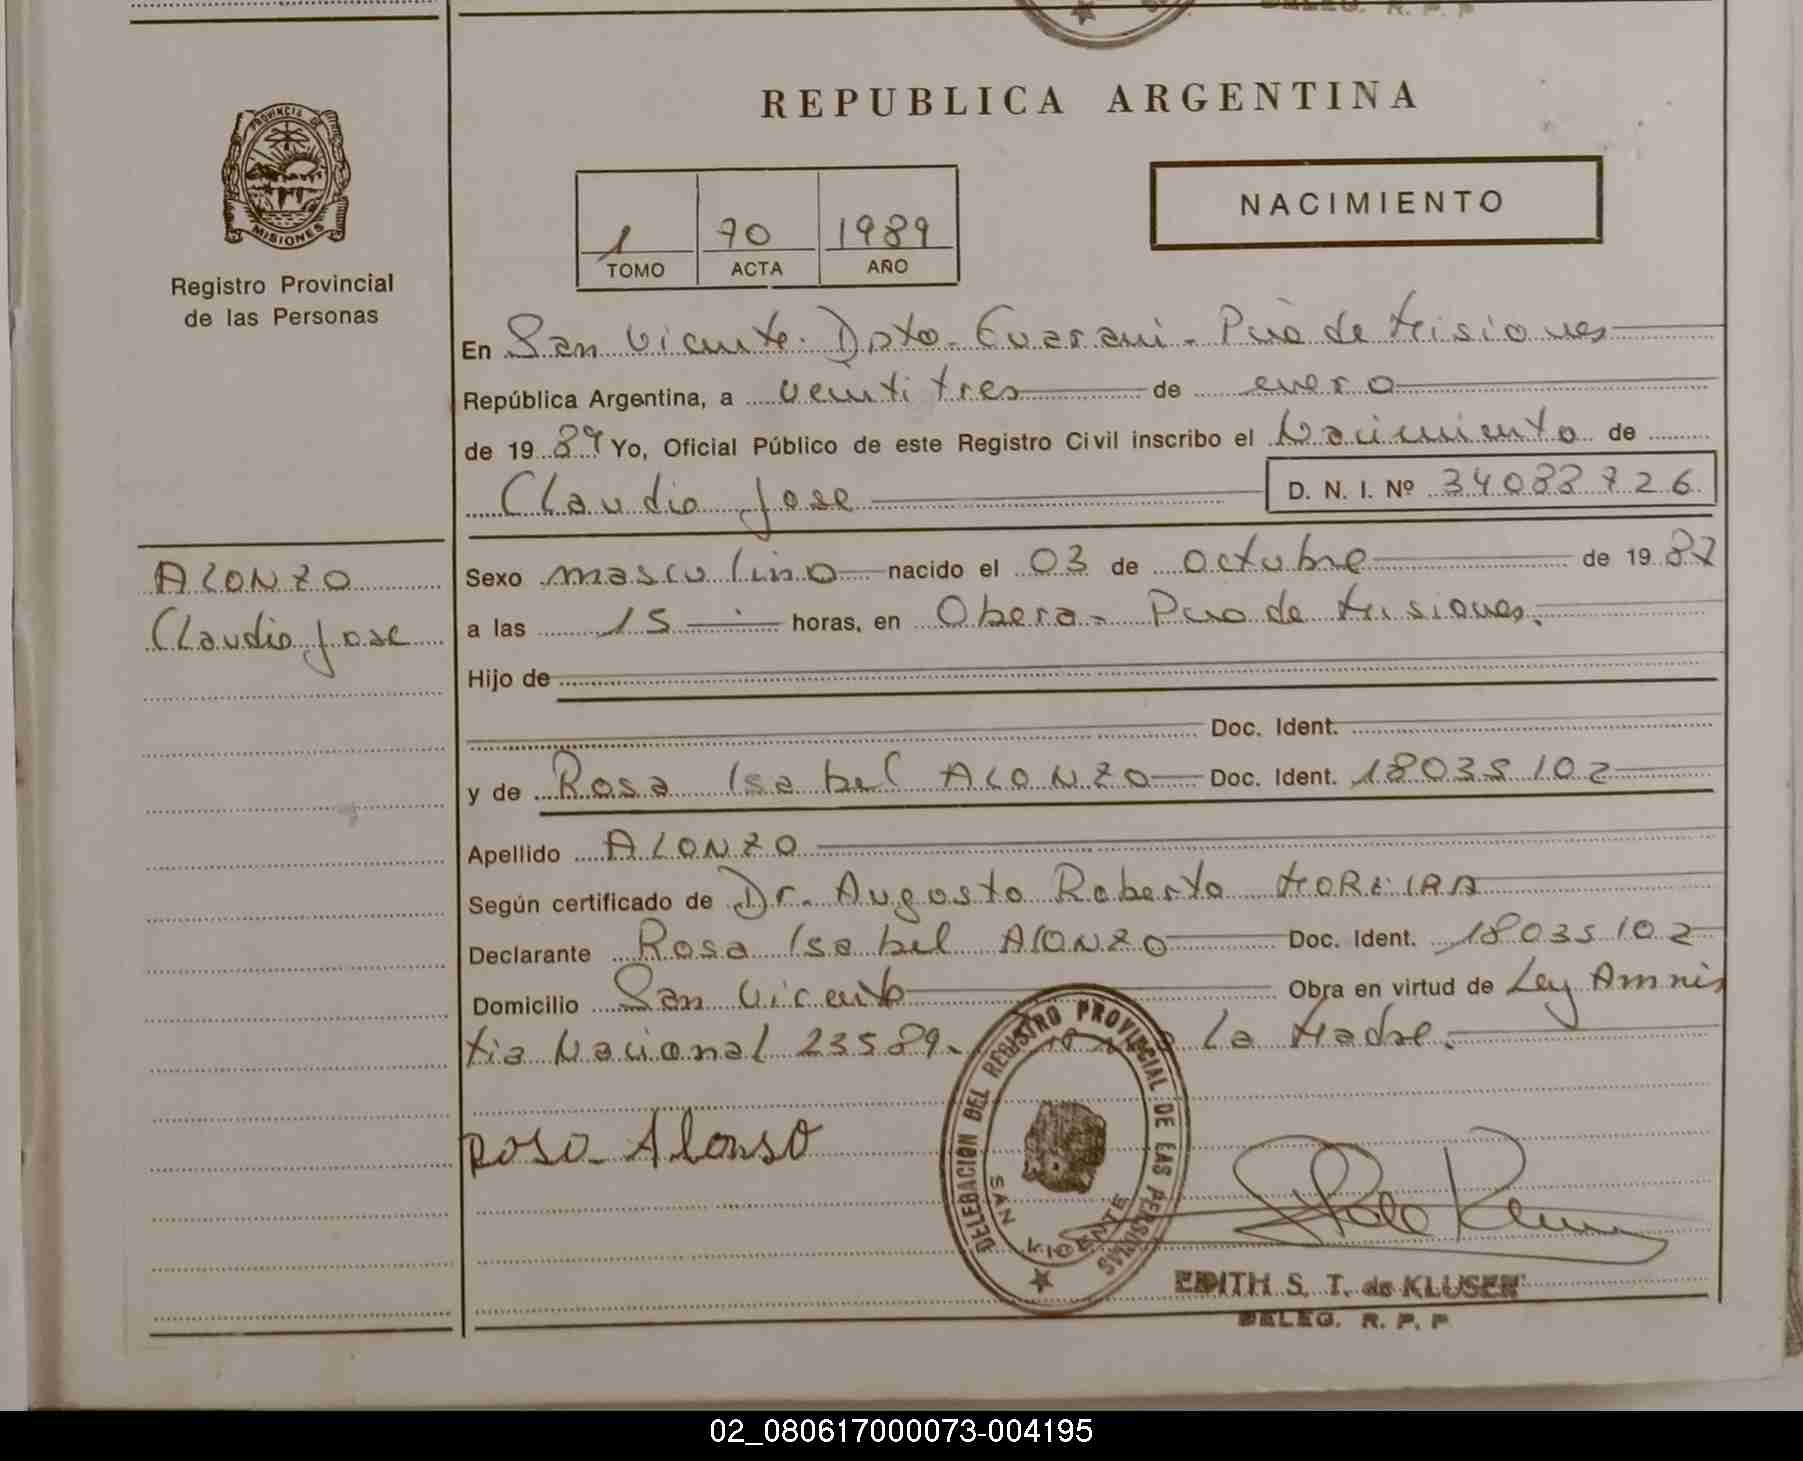 DELEG. R. P. P
REPUBLICA ARGENTINA
PROVINCIA DE
MISIONES
Registro Provincial
de las Personas
1 90 1989
TOMO ACTA AÑO
NACIMIENTO
En San Vicente. Dpto. Guarani - Pcia de Misiones
República Argentina, a veintitres de enero
de 19 89 Yo, Oficial Público de este Registro Civil inscribo el Nacimiento de
Claudio Jose D. N. I. Nº
ALONZO
Claudio Jose
Sexo masculino nacido el 03 de octubre de 19 87
a las 15 horas, en Obera - Pcia de Misiones.
Hijo de
Doc. Ident.
y de Rosa Isabel ALONZO Doc. Ident. 18035102
Apellido ALONZO
Según certificado de Dr. Augusto Roberto MOREIRA
Declarante Rosa Isabel ALONZO Doc. Ident. 18035102
Domicilio San Vicente Obra en virtud de Ley Amnis
tia Nacional 23589. la Madre.
Rosa Alonso
DELEGACION DEL REGISTRO PROVINCIAL DE LAS PERSONAS
SAN VICENTE
EDITH S. T. de KLUSEN
DELEG. R. P. P
02_080617000073-004195